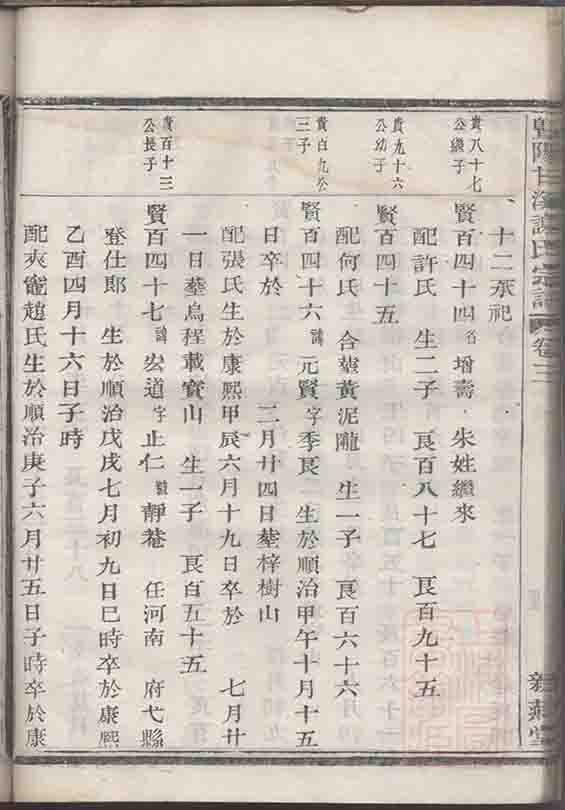 十二承祀
貴八十七
公繼子
賢百四十四名增壽朱姓繼來
配許氏 生二子 良百八十七 良百九十五
貴九十六
公幼子
賢百四十五
配何氏 合葬黃泥隴 生一子 良百六十六
貴百九公
三子
賢百四十六諱元賢字季良二 生於順治甲午十月十五
日卒於 二月廿四日葬梓樹山
配張氏生於康熙甲辰六月十九日卒於 七月廿
一日葬烏程載寶山 生一子 良百五十五
貴百十三
公長子
賢百四十七諱宏道字止仁號靜菴 任河南 府弋縣
登仕郎 生於順治戊戌七月初九日巳時卒於康熙
乙酉四月十六日子時
配夾龍趙氏生於順治庚子六月廿五日子時卒於康
氏宗譜 卷三
堂